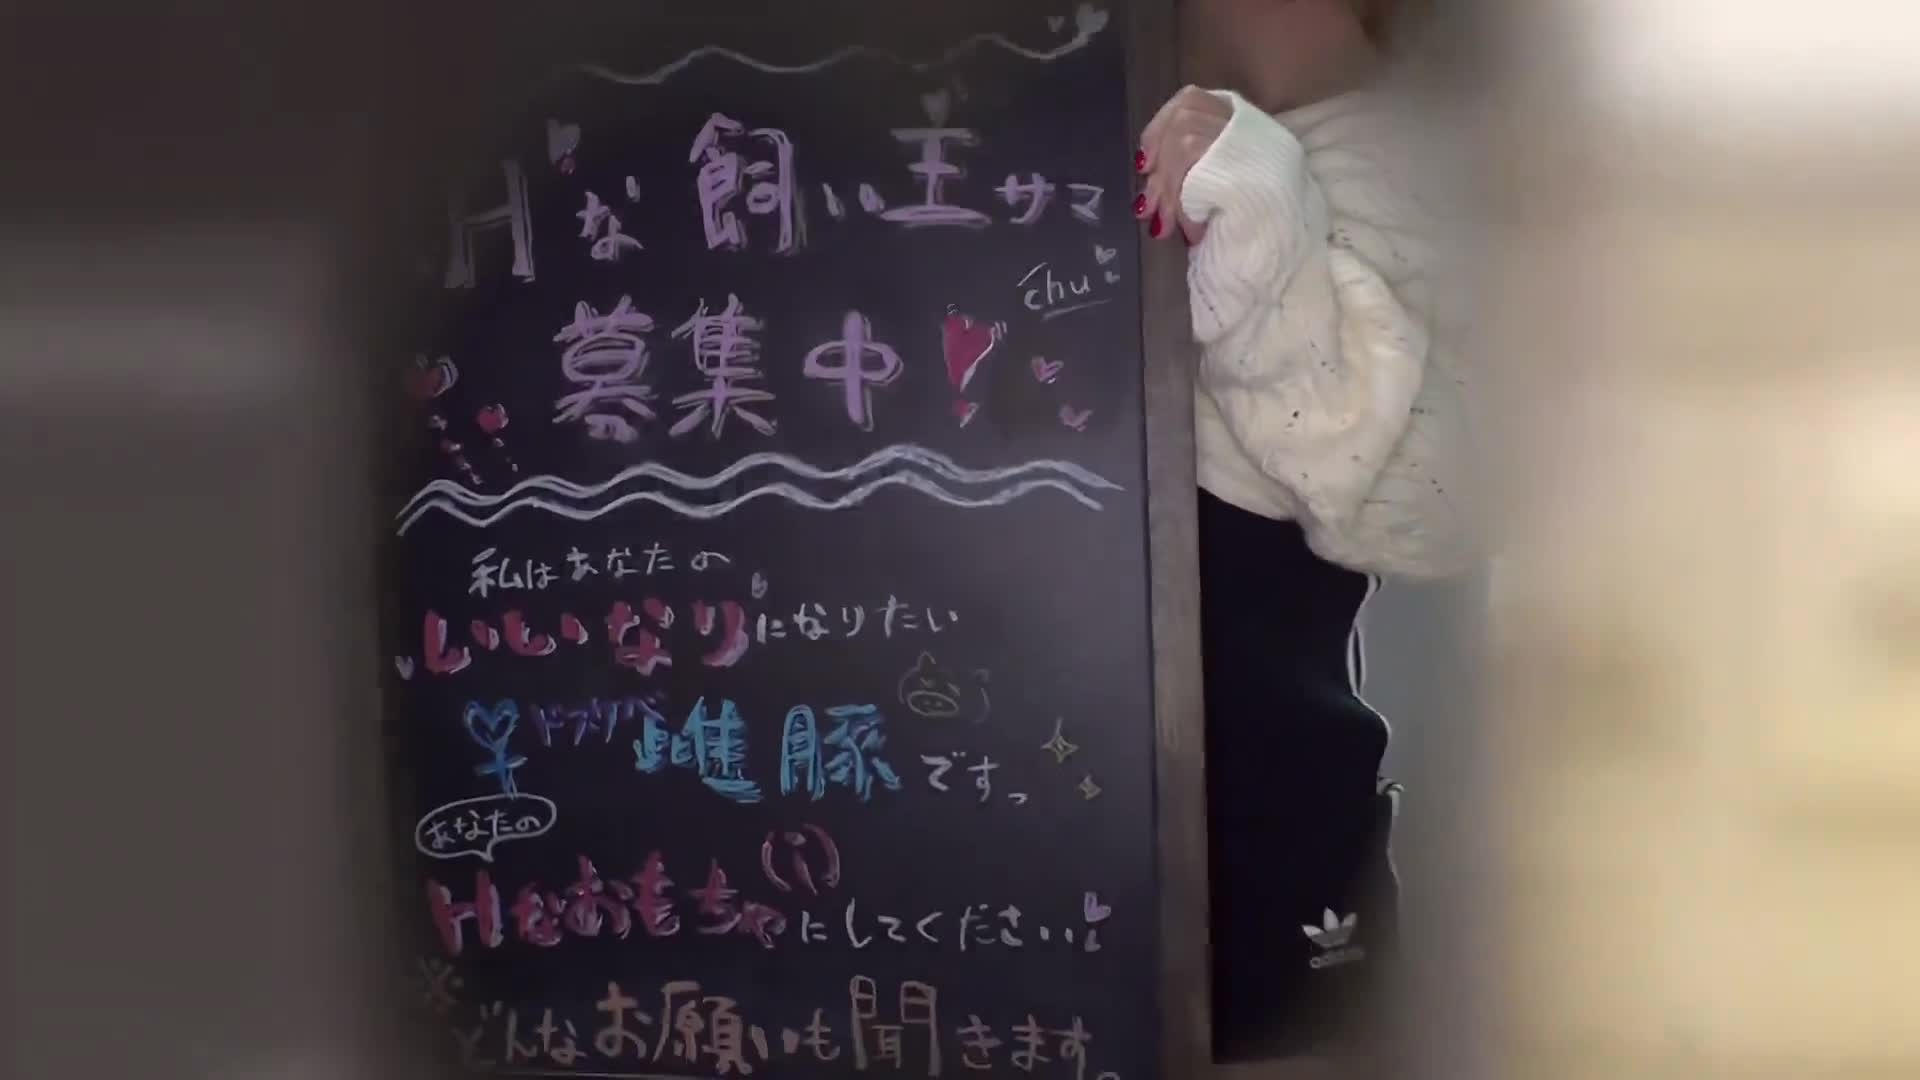 Hな飼い主サマ
募集中
chu
私はあなたの
いいなりになりたい
ドスケベ雌豚です。
あなたの
Hなおもちゃにしてください
※どんなお願いも聞きます。
adidas